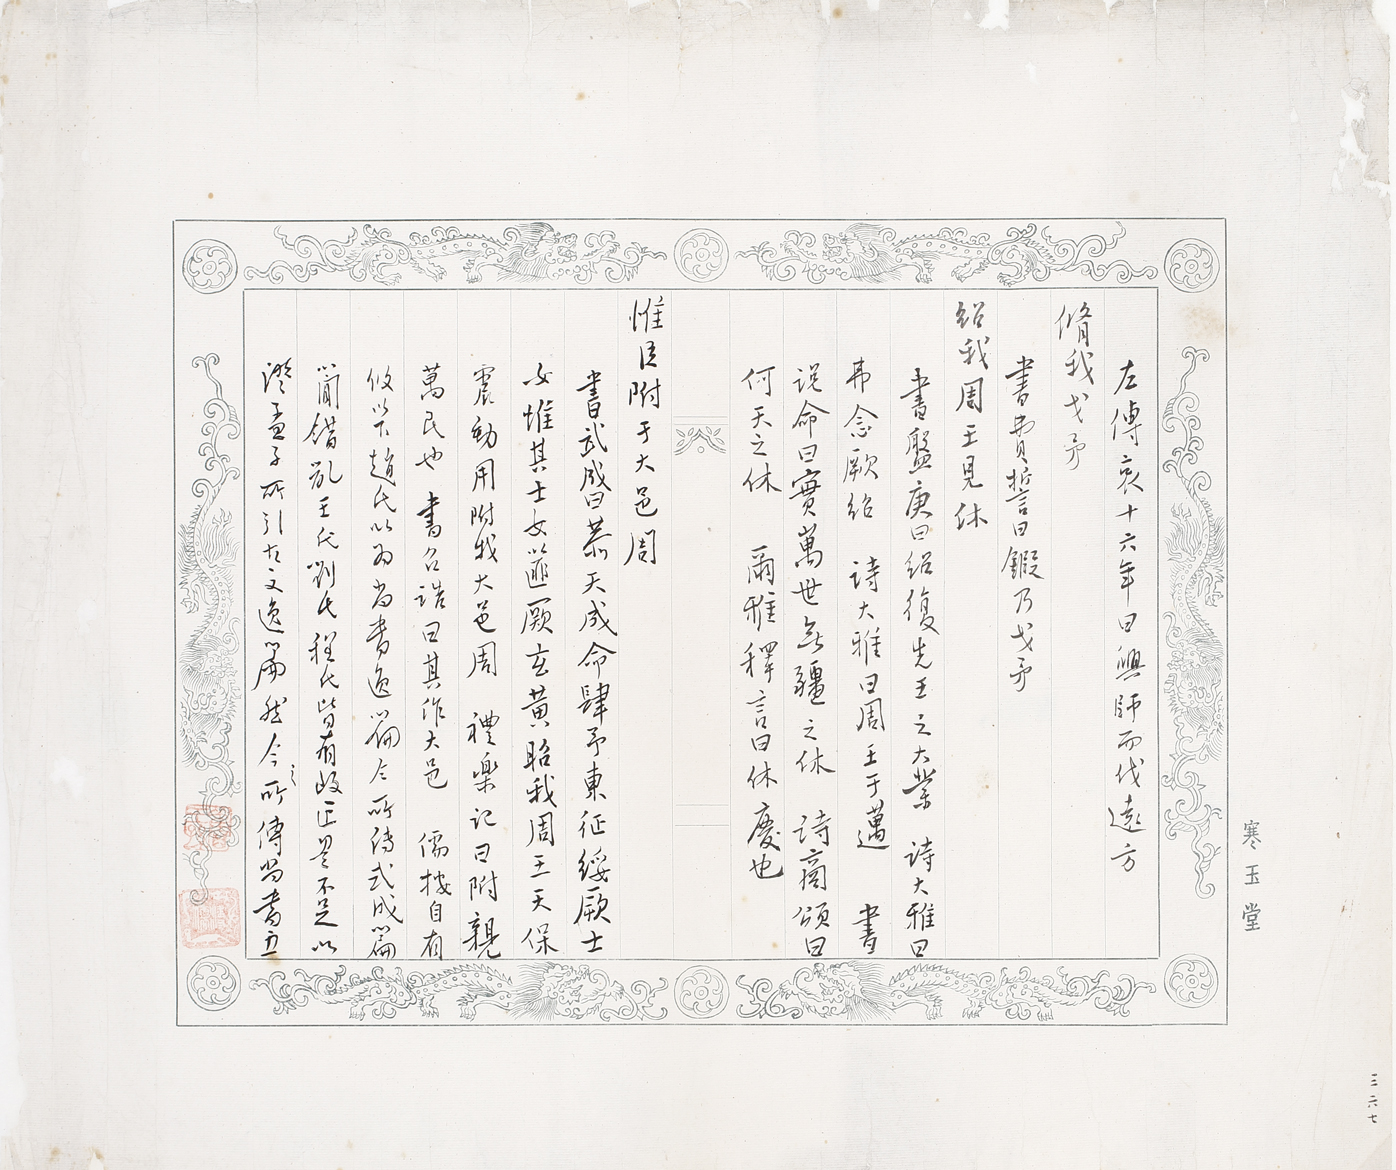 左傳哀十六年曰興師而伐遠方
脩我戈予
書費誓曰鍜乃戈予
紹我周王見休
書盤庚曰紹復先王之大業　詩大雅曰
弗念厥紹　詩大雅曰周王于邁　書
說命曰實萬世無疆之休　詩商頌曰
何天之休　爾雅釋言曰休慶也
惟臣附于大邑周
書武成曰恭天成命肆予東征綏厥士
女惟其士女篚厥玄黃昭我周王天保
震動用附我大邑周　禮樂記曰附親
萬民也　書召誥曰其作大邑　儒按自有
攸以下趙氏以為尚書逸篇今所傳武成篇
簡錯亂王氏劉氏程氏皆有改正不足以
證孟子所引古文逸篇然今之所傳尚書五
寒玉堂
三六七